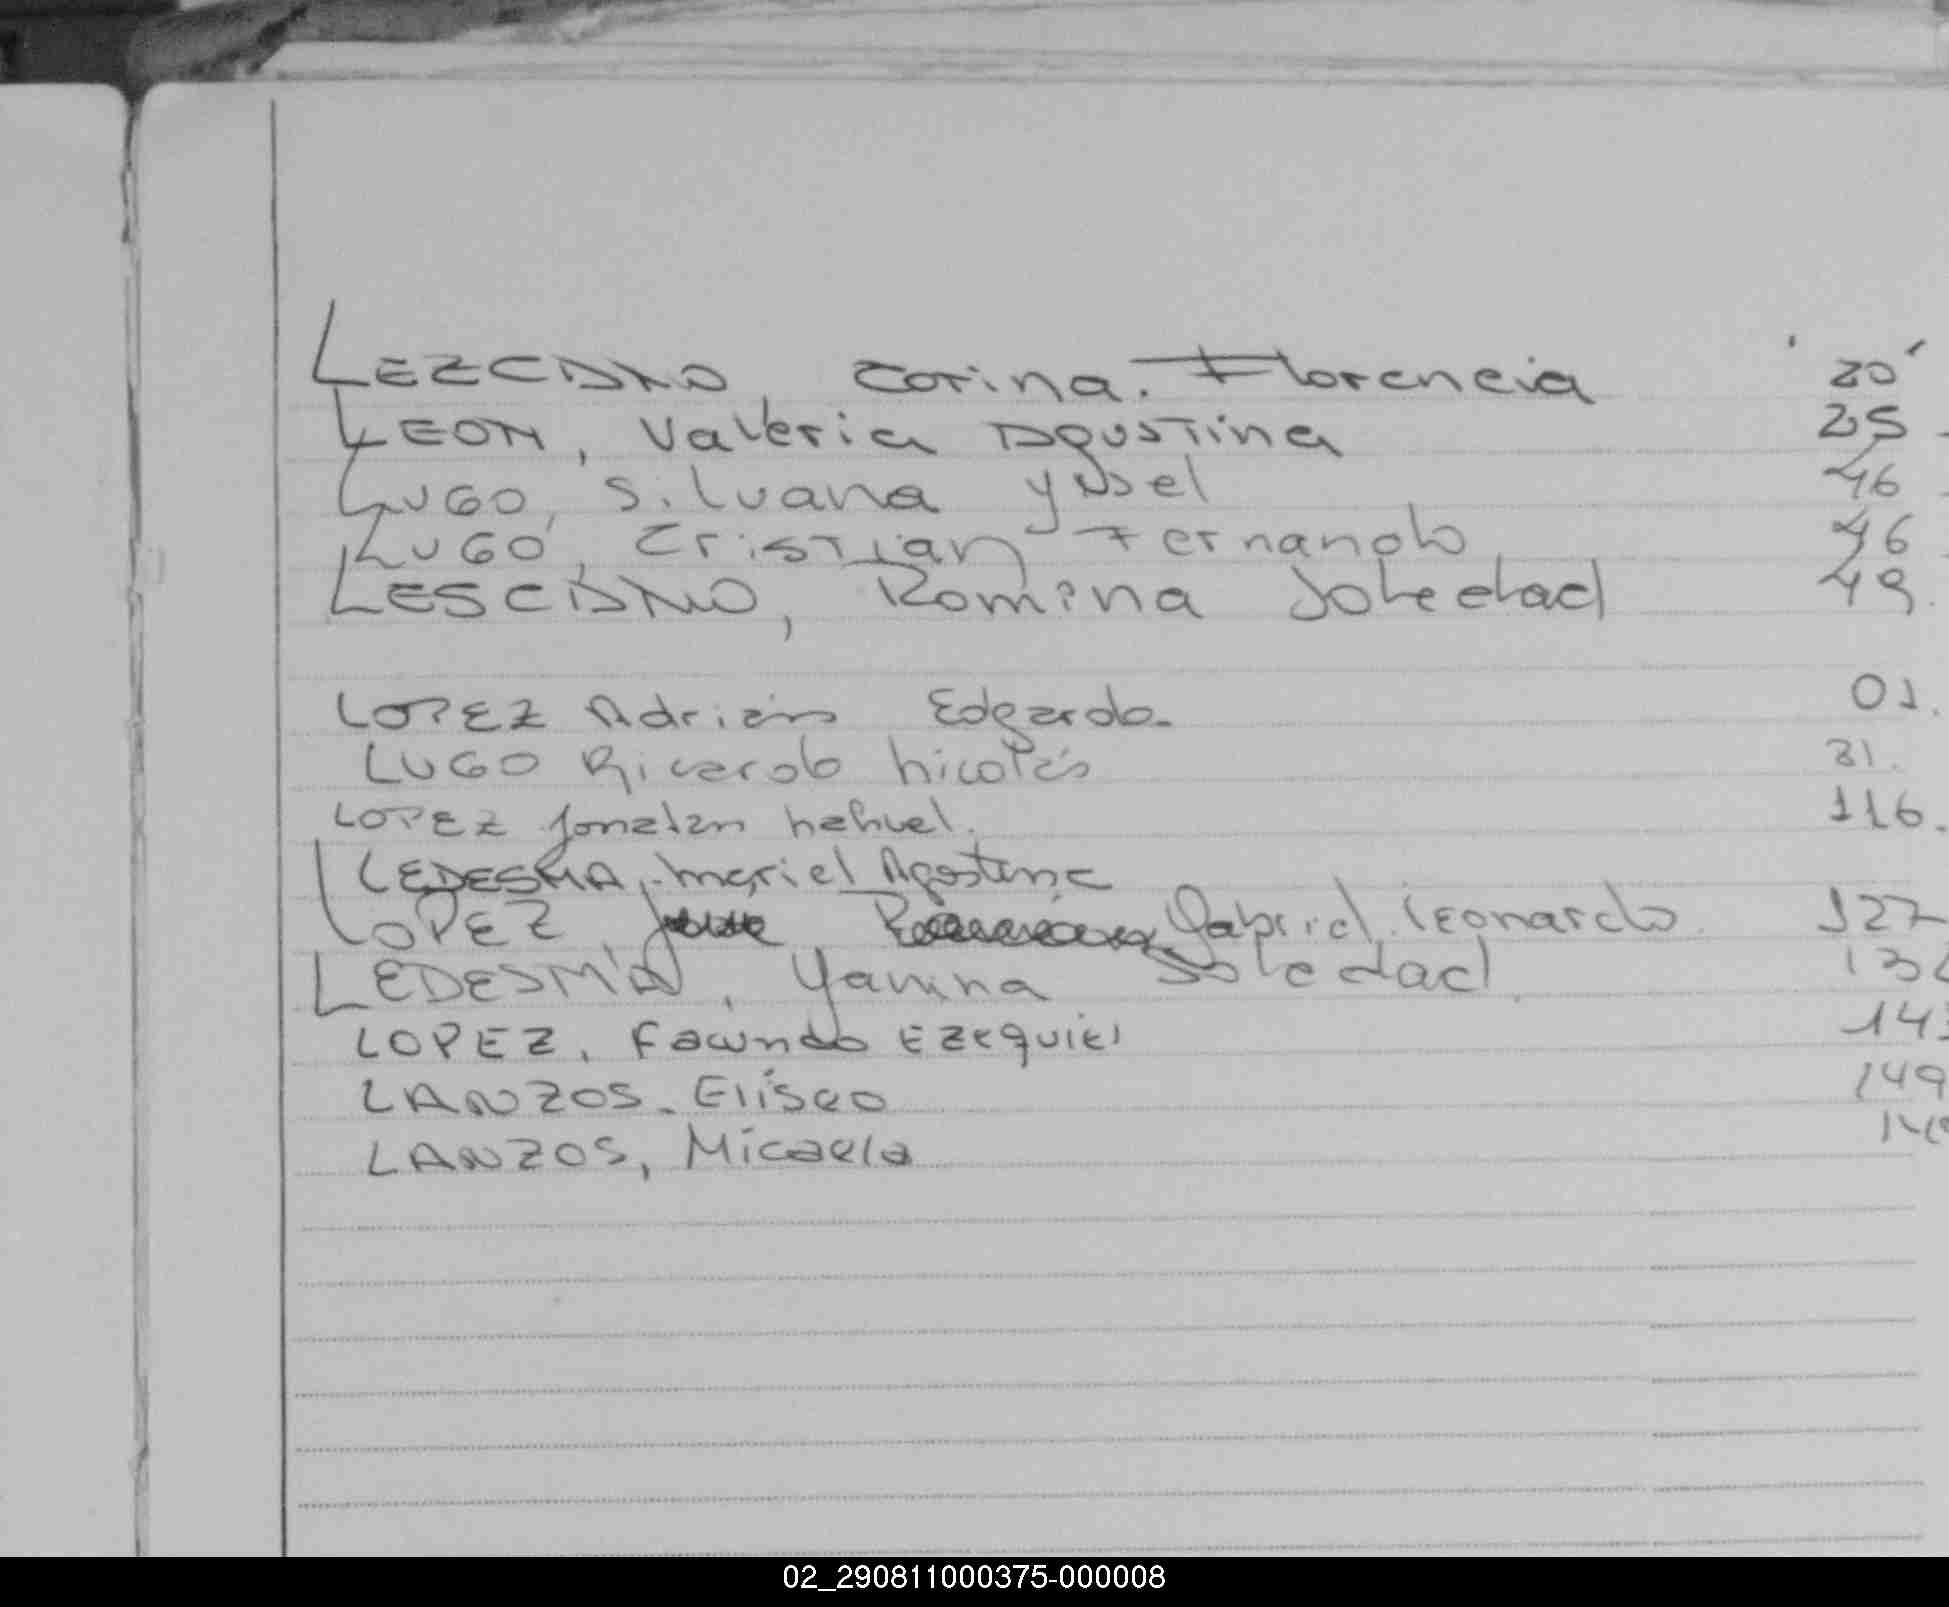 LEZCANO, Corina. Florencia 20
LEON, Valeria Agustina 25
LUGO, Silvana Ysel 46
LUGO, Cristian Fernando 46
LESCANO, Romina Soledad 49
LOPEZ Adrián Edgardo. 01.
LUGO Ricardo Nicolás 31.
LOPEZ Jonatan Nahuel. 116.
LEDESMA, Mariel Agostina
LOPEZ, Gabriel Leonardo 127
LEDESMA, Yanina Soledad
LOPEZ, Facundo Ezequiel
LANZOS. Eliseo 149
LANZOS, Micaela
02_290811000375-000008